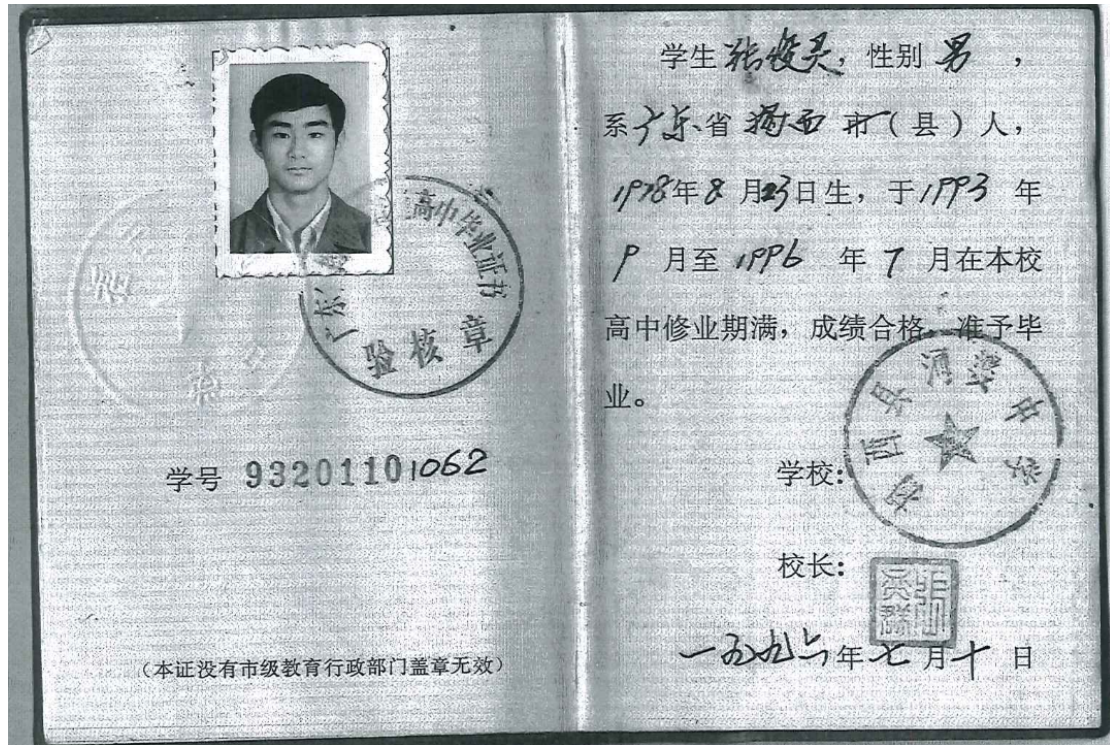 广东 高中毕业证书
验核章
学号 932011101062
（本证没有市级教育行政部门盖章无效）
学生张俊灵，性别 男 ，
系广东省 揭西 市（县）人，
1978年8月23日生，于1993 年
9 月至 1996 年 7 月在本校
高中修业期满，成绩合格，准予毕
业。
学校：
揭西县河婆中学
校长：
一九九六年七月十日